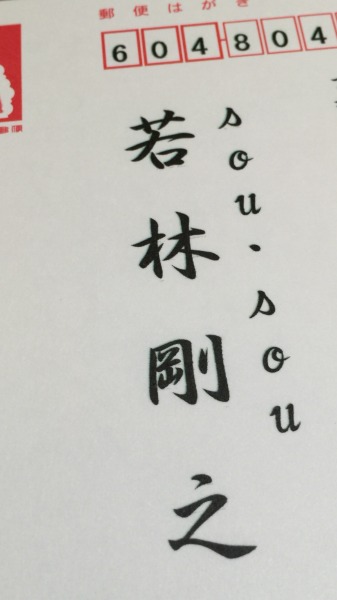 郵便はがき
604-804
sou・sou
若林剛之